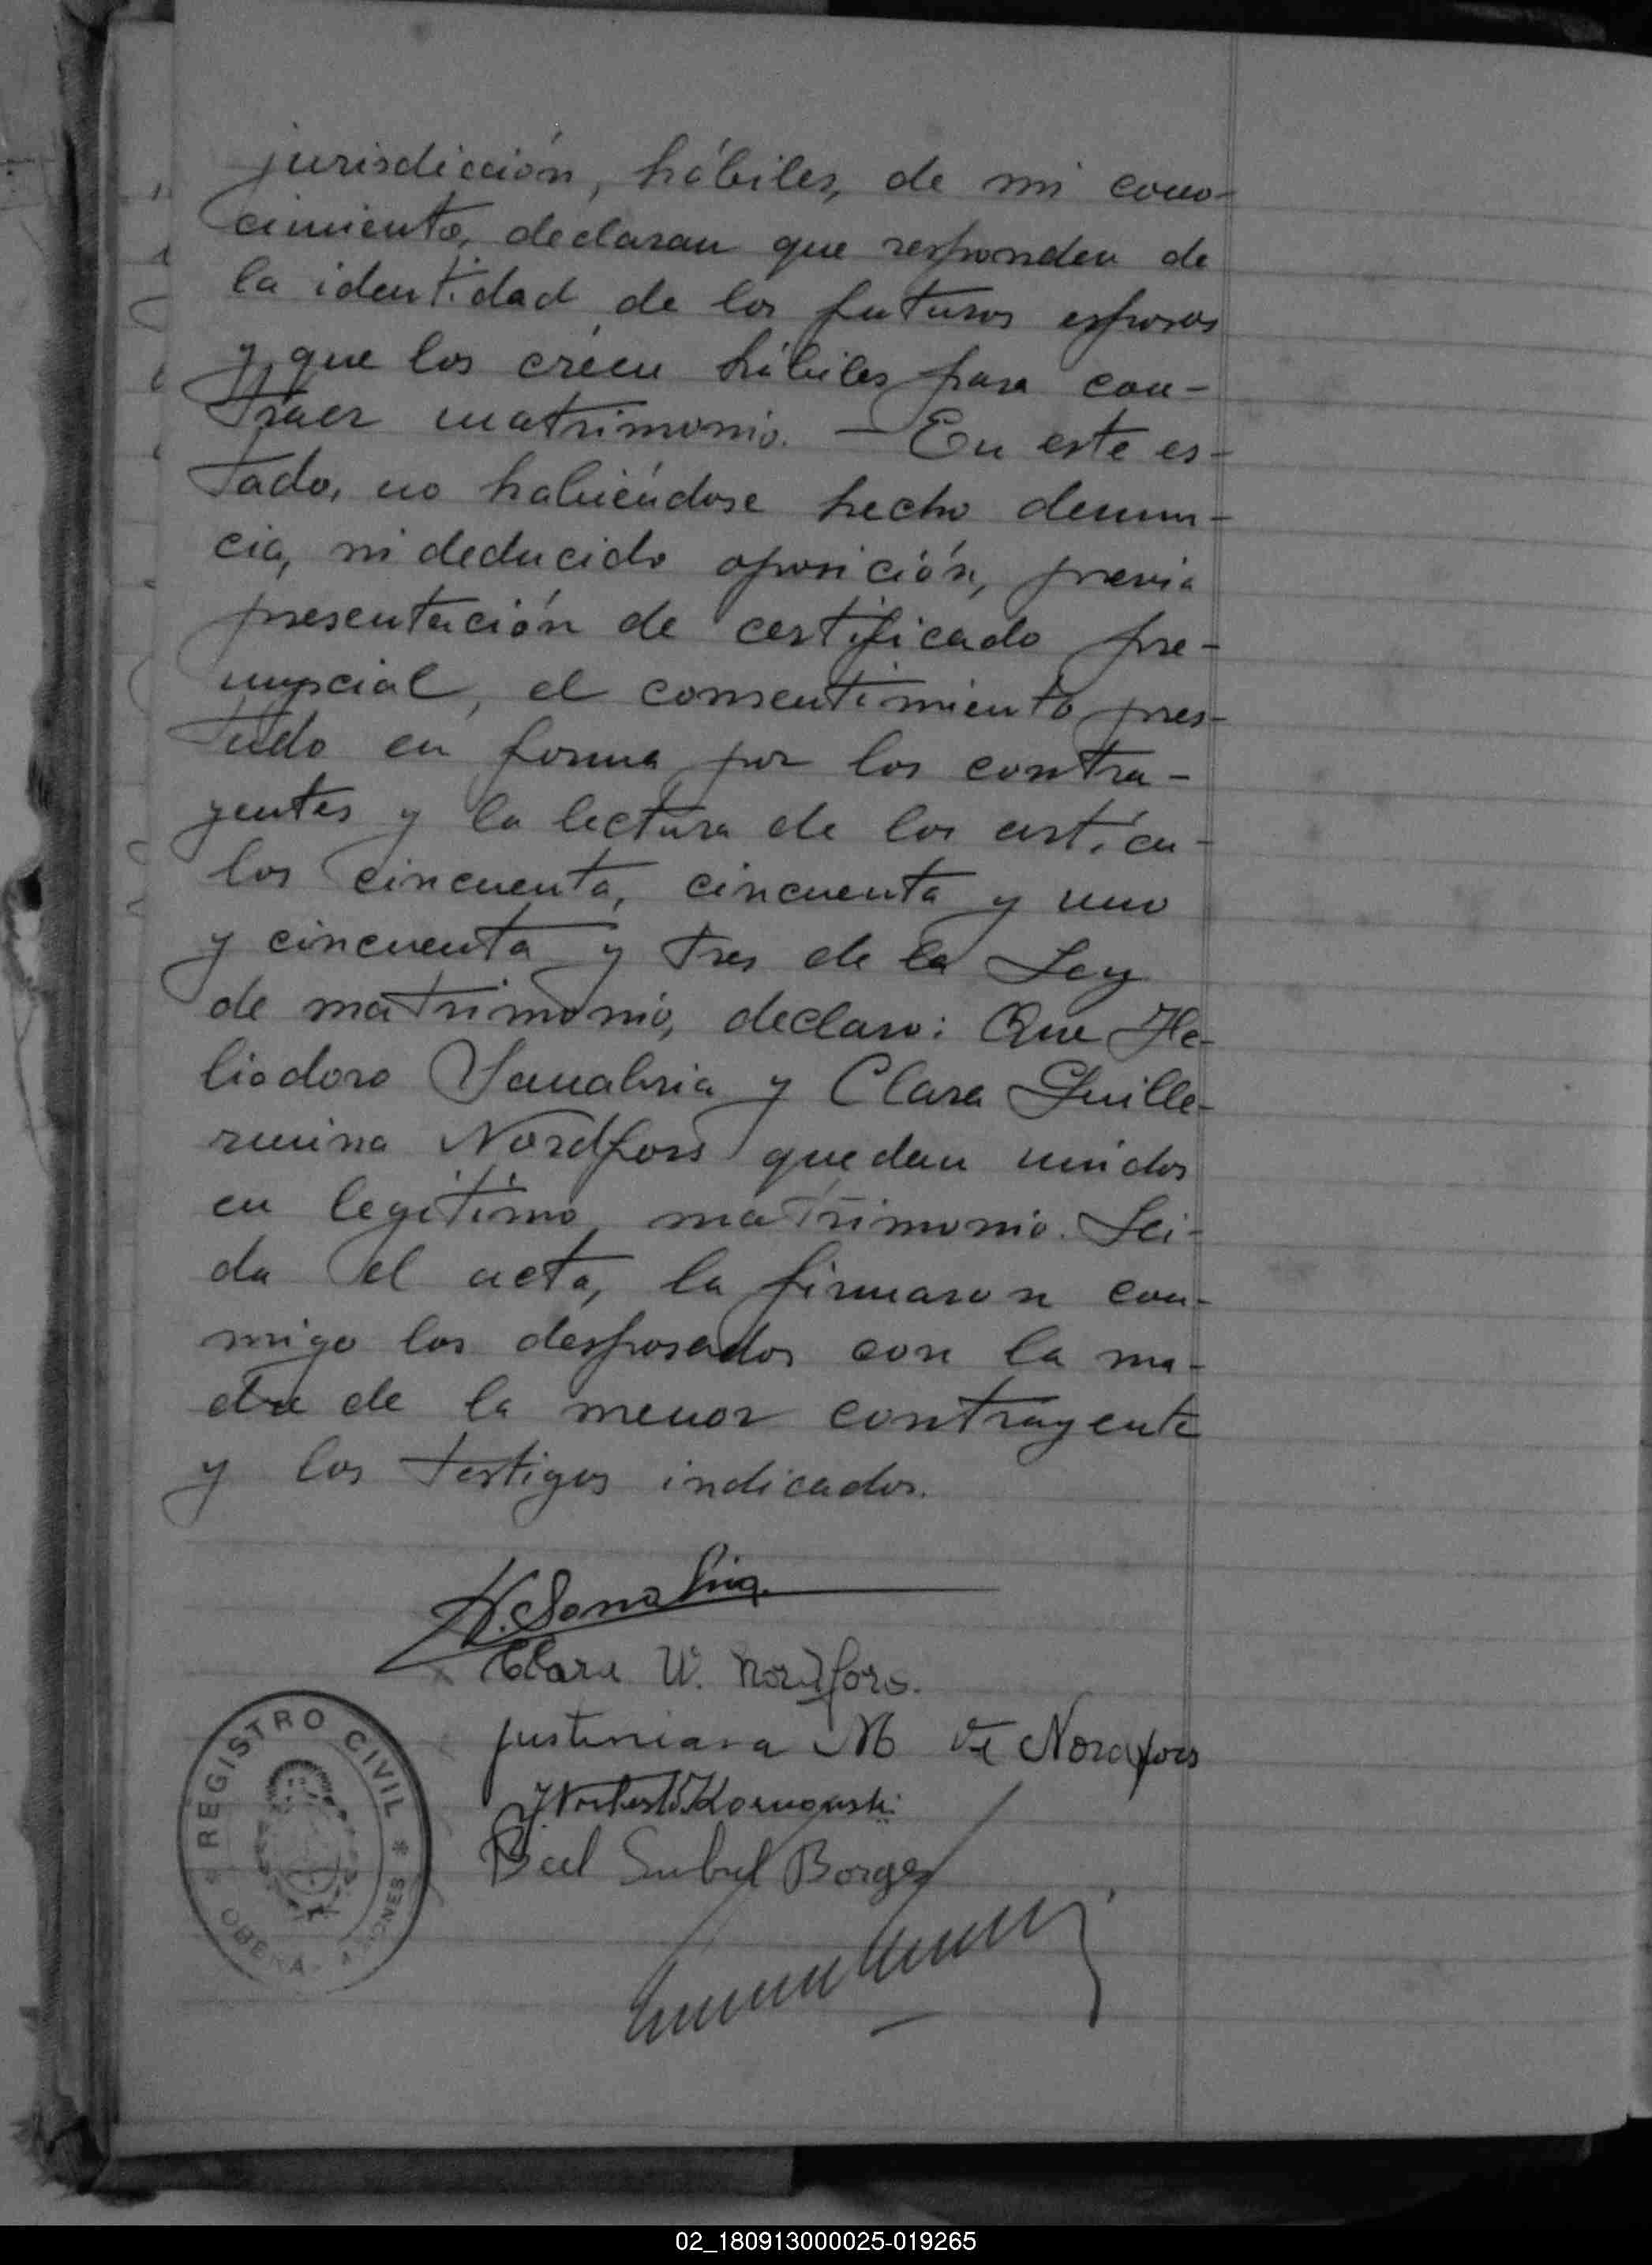 jurisdicción, hábiles, de mi cono-
cimiento, declaran que responden de
la identidad de los futuros esposos
y que los créen hábiles para con-
traer matrimonio. — En este es-
tado, no habiéndose hecho denun-
cia, ni deducido oposición, previa
presentación de certificado pre-
nupcial, el consentimiento pres-
tado en forma por los contra-
yentes y la lectura de los artícu-
los cincuenta, cincuenta y uno
y cincuenta y tres de la Ley
de matrimonio, declaro: Que He-
liodoro Sanabria y Clara Guille-
rmina Nordfors quedan unidos
en legítimo matrimonio. Lei-
da el acta, la firmaron con-
migo los desposados con la ma-
dre de la menor contrayente
y los testigos indicados.
H. Sanabria
Clara W. Nordfors.
Justiniana M de Nordfors
Borges
REGISTRO CIVIL
OBERA - MISIONES
02_180913000025-019265